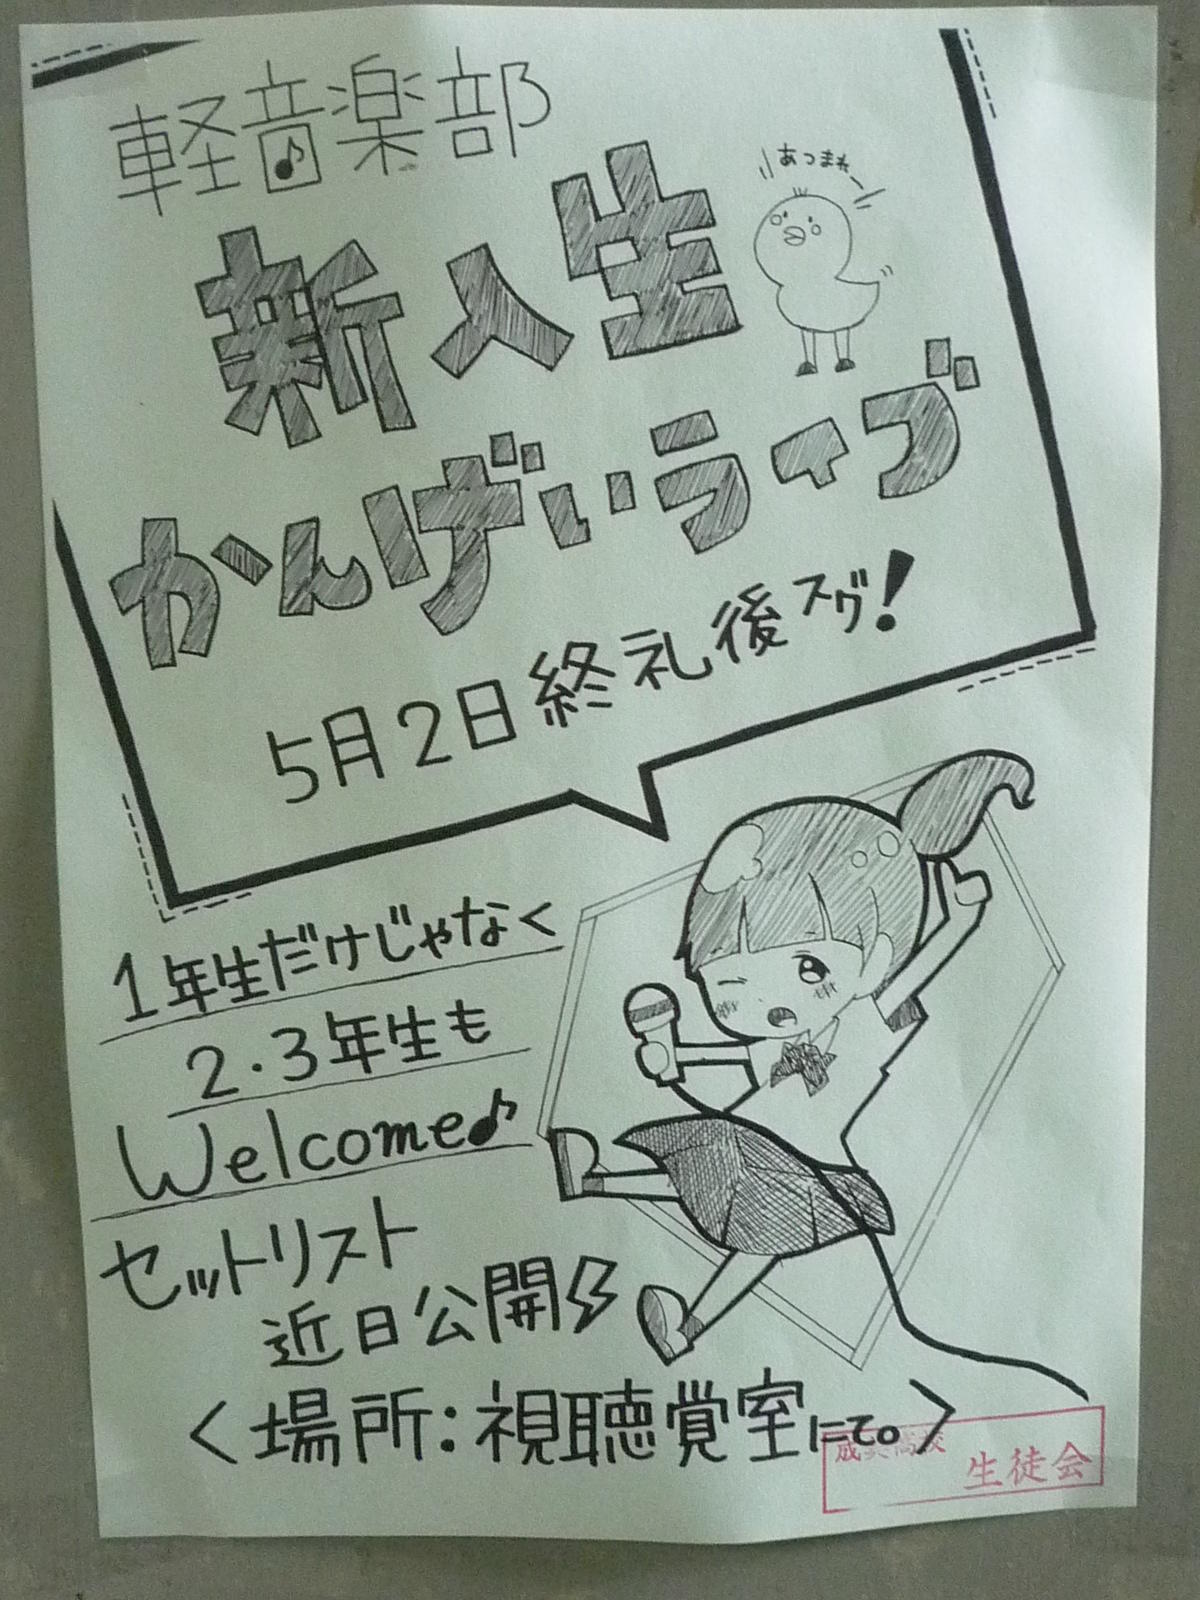 軽音楽部
あつまれー
新入生
かんげいライブ
5月2日終礼後スグ!
1年生だけじゃなく
2・3年生も
Welcome♪
セットリスト
近日公開
<場所:視聴覚室にて。>
生徒会